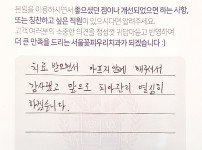 본원을 이용하시면서 좋으셨던 점이나 개선되었으면 하는 사항,
또는 칭찬하고 싶은 직원이 있으시다면 알려주세요.
고객 여러분의 소중한 의견을 정성껏 귀담아듣고 반영하여
더 큰 만족을 드리는 서울꽃피우리치과가 되겠습니다 :)
치료 받으면서 아프지 않게 해주셔서
감사했고 앞으로 치아관리 열심히
하겠습니다.